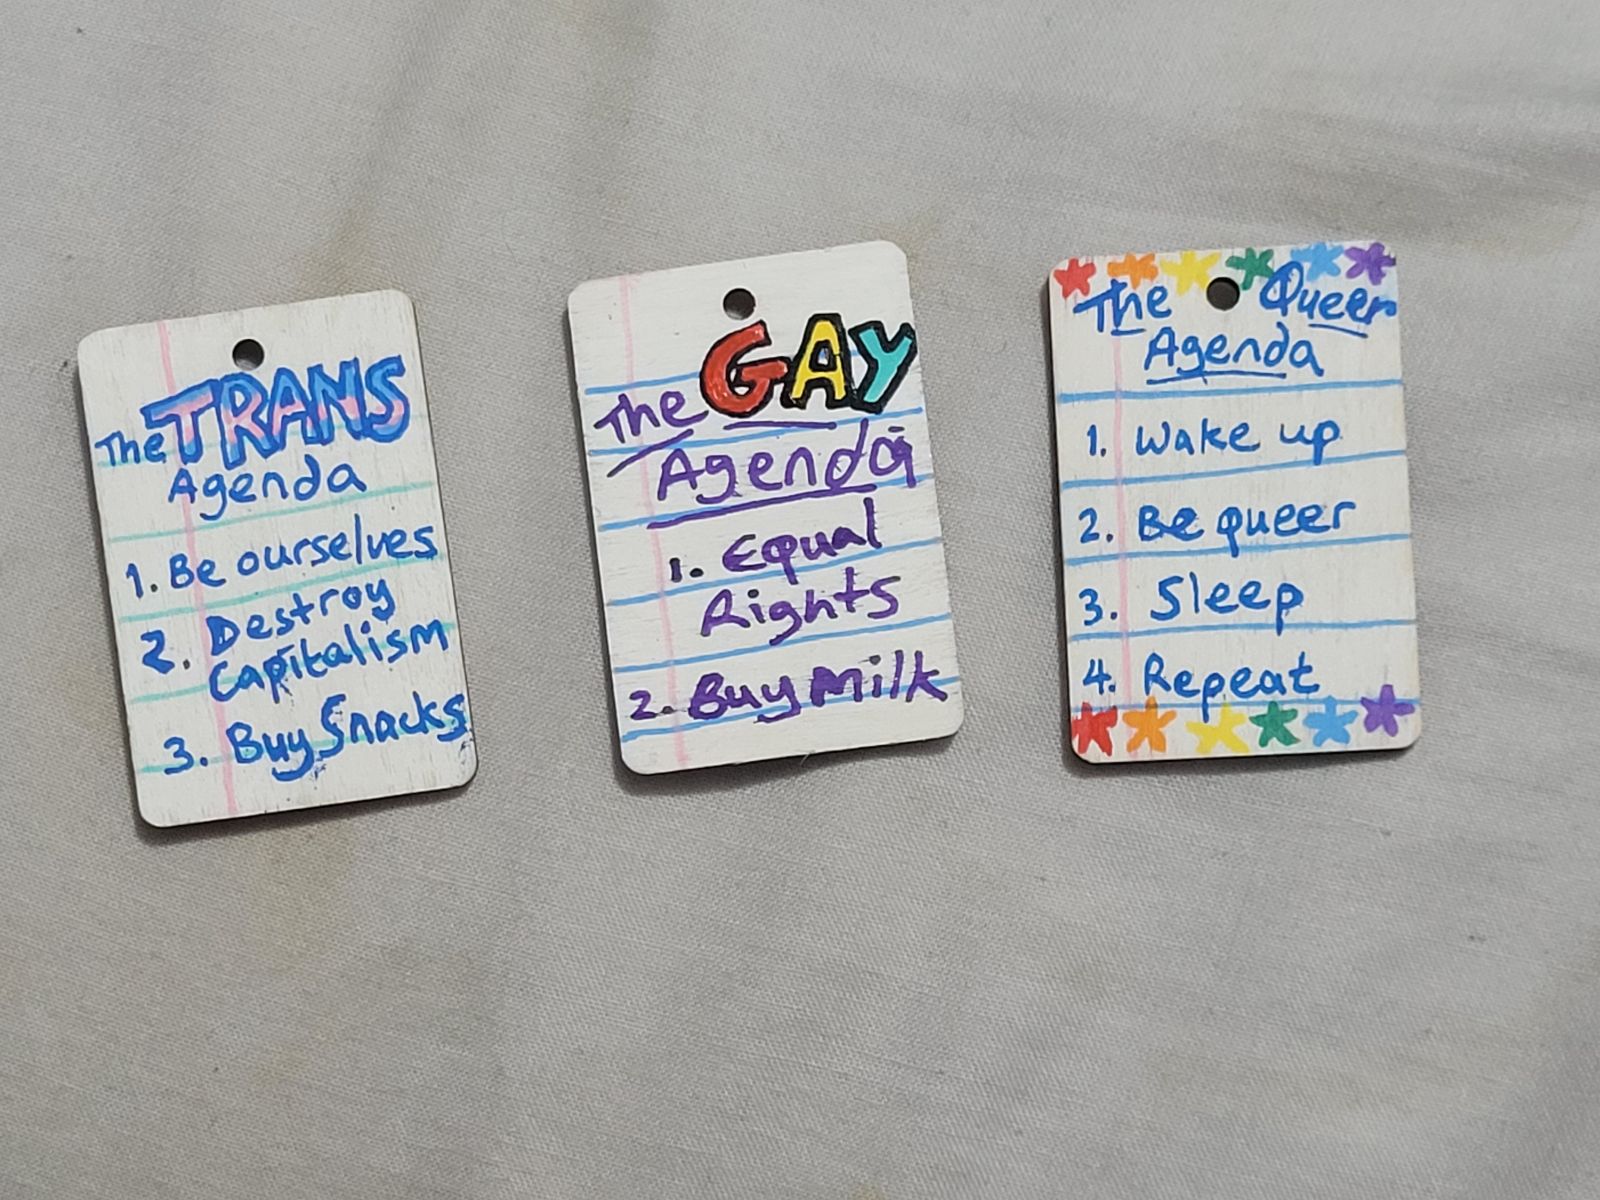 The TRANS
Agenda
1. Be ourselves
2. Destroy
Capitalism
3. Buy Snacks
The GAY
Agenda
1. Equal
Rights
2. Buy Milk
The Queer
Agenda
1. Wake up
2. Be queer
3. Sleep
4. Repeat